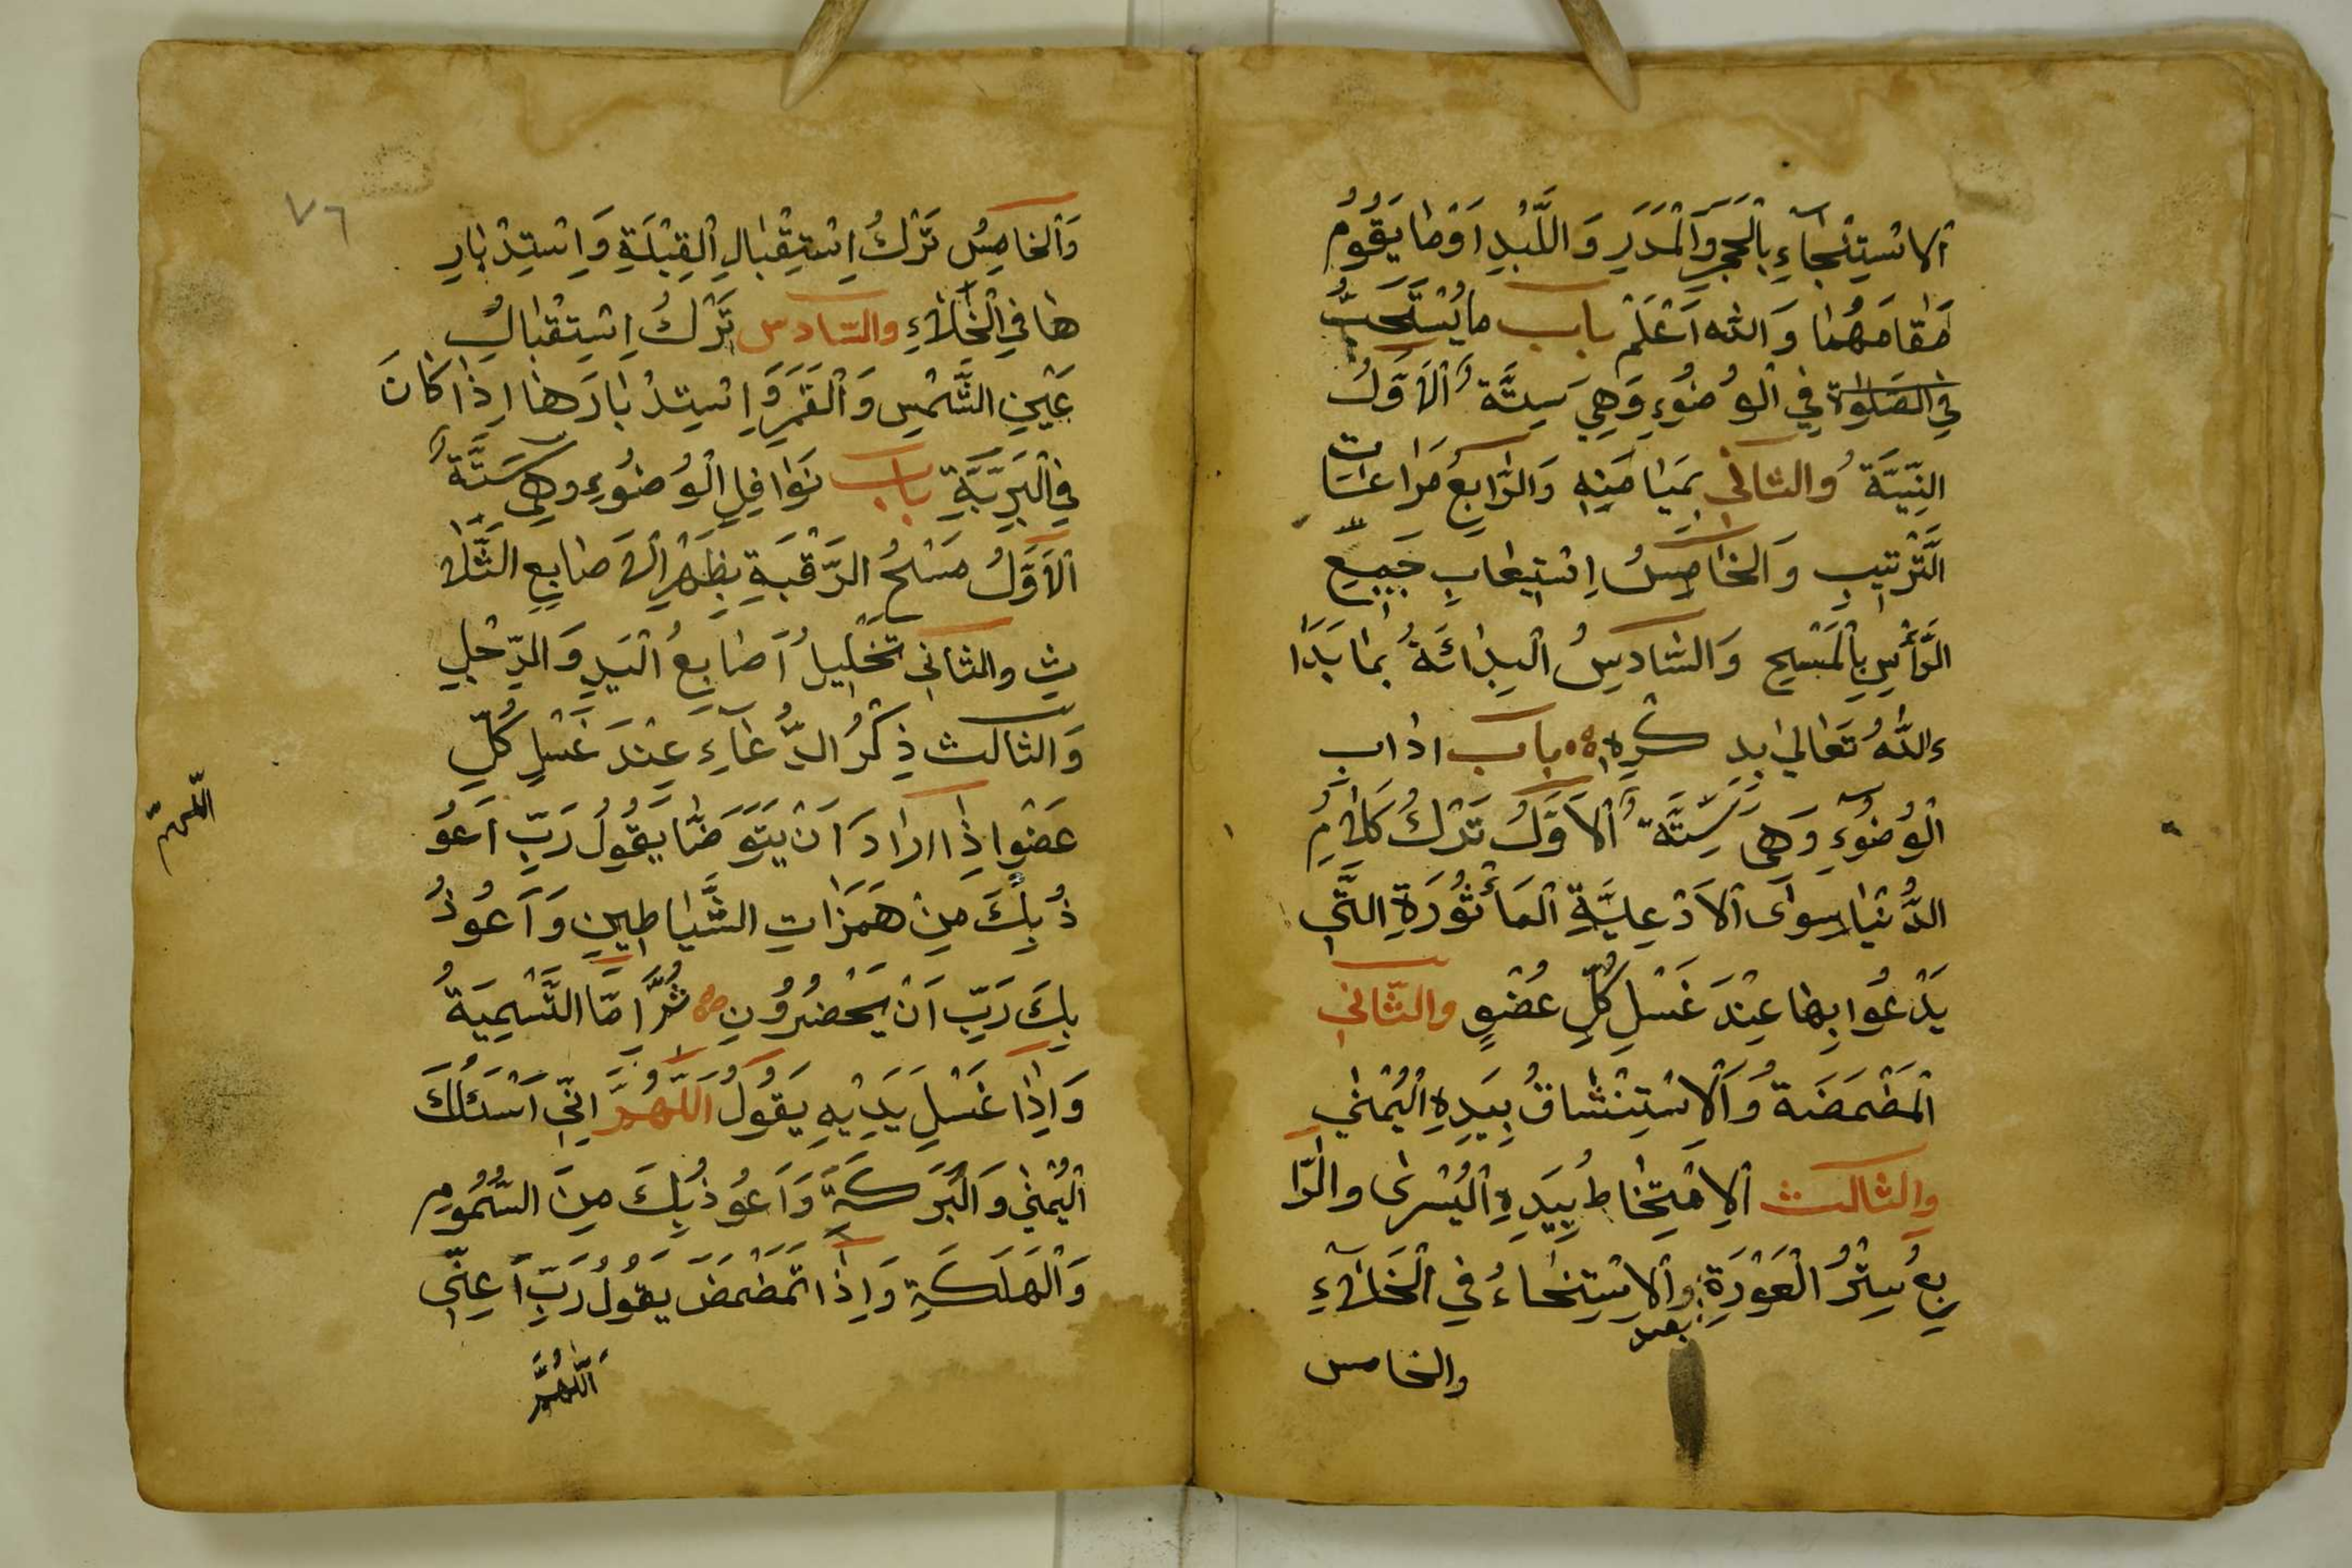 اَلاسْتِنْجَاءِ بِالْحَجَرِ وَالْمَدَرِ وَاللَّبْدِ اَوْ مَا يَقُومُ
مَقَامَهُمَا وَاللّٰه اَعْلَمْ باب ما يُسْتَحَبُّ
في الصلوٰة فِي الْوُضُوءِ وَهِيَ سِتَّةٌ اَلْاَوَّلُ
النِّيَّةُ وَالثانى بِمَيَامِنِهِ وَالرَّابِعُ مُرَاعَات
التَّرْتِيبِ وَالْخَامِسُ اِسْتِيعَابِ جَمِيعِ
الرَّأْسِ بِالْمَسْحِ وَالسَّادِسُ الْبِدَائَةُ بِمَا بَدَا
ءَاللّٰهُ تَعَالىٰ بِذِكْرِهِ باب اداب
الْوُضُوءِ وَهى سِتَّةٌ اَلْاَوَّلُ تَرْكُ كَلَامُ
الدُّنْيَا سِوَى الْاَدْعِيَّةِ الْمَأْثُورَةِ الَّتِى
يَدْعُوا بِهَا عِنْدَ غَسْلِ كُلِّ عُضْوٍ وَالثَّانِي
الْمَضْمَضَةُ وَالْاِسْتِنْشَاقُ بِيَدِهِ الْيُمْنىٰ
وَالثالث الْاِمْتِخَاطُ بِيَدِهِ الْيُسْرىٰ وَالرَّا
بِعُ سِتْرُ الْعَوْرَةِ بعد وَالْاِسْتِنْجَاءُ فِي الْخَلَاءِ
والخامس
٧٦
وَالْخَامِسُ تَرْكُ اِسْتِقْبَالِ الْقِبْلَةِ وَاِسْتِدْبَارِ
هَا فِي الْخَلَاءِ والسّادس تَرْكُ اِسْتِقْبَالُ
عَيْنِ الشَّمْسِ وَالْقَمَرِ وَاِسْتِدْبَارَهَا اِذَا كَانَ
فِي الْبَرِيَّةِ باب نَوَافِلِ الْوُضُوءِ وهى سِتَّةٌ
اَلْاَوَّلُ مَسْحُ الرَّقَبَةِ بِظَهْرِ الْاَصَابِعِ الثَّلَا
ثِ والثانى تَخْلِيلُ اَصَابِعُ الْيَدِ وَالرِّجْلِ
وَالثالث ذِكْرُ الدُّعَاءِ عِنْدَ غَسْلِ كُلِّ
عَضْوٍ اِذَا اَرَادَ اَنْ يَتَوَضَّا يَقُولُ رَبِّ اَعُو
ذُ بِكَ مِنْ هَمَزَاتِ الشَّيَاطِينِ وَاَعُوذُ
بِكَ رَبِّ اَنْ يَحْضُرُونِ ثُمَّ اِمَّا التَّسْمِيَةُ
وَاِذَا غَسْلِ يَدَيْهِ يَقُولُ اَللّٰهُمَّ اِنِّى اَسْئَلُكَ
الْيُمْنٰى وَالْبَرَكَةَ وَاَعُوذُ بِكَ مِنَ السُّمُومِ
وَالْهَلَكَةِ وَاِذَا تَمَضْمَضَ يَقُولُ رَبِّ اَعِنِّى
اَللّٰهُمَّ
اللّهمّ